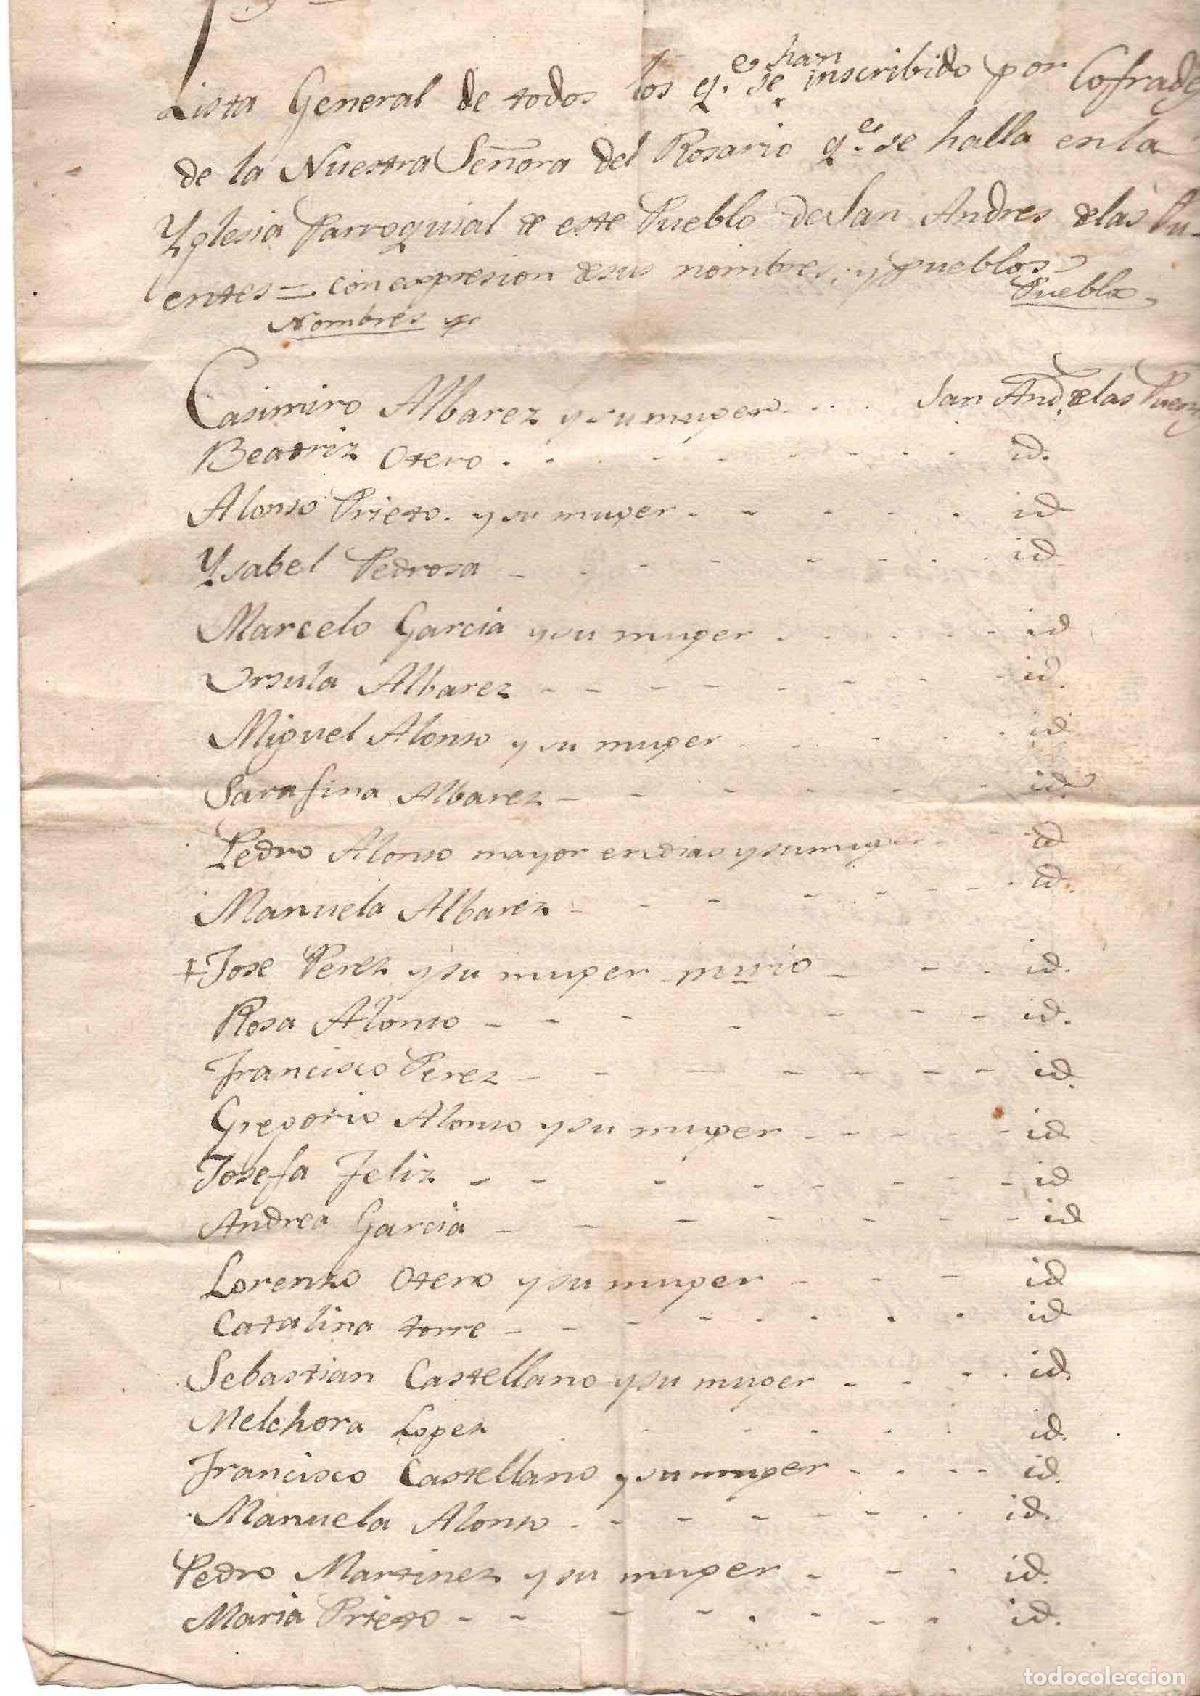 Lista General de todos los q.e se han inscribido por Cofrades
de la Nuestra Señora del Rosario q.e se halla en la
Yglesia Parroquial de este Pueblo de San Andres de las Pu-
entes = con expresion de sus nombres, y pueblos
Nombres y Pueblos
Casimiro Albarez y su muger.... San And. de las Puent
Beatriz Otero . . . . . . . . . id.
Alonso Prieto. y su muger. - - - . id
Ysabel Pedrosa - - - - - - - - id.
Marcelo Garcia y su muger . . . . . id
Orsula Albarez - - - - - - - - - id.
Miguel Alonso y su muger . . . . . id
Sarafina Albarez - - - - - - - id.
Pedro Alonso mayor en dias y su muger - - id
Manuela Albarez - - - - - - - - id.
+ Jose Perez y su muger murio - - - . id.
Rosa Alonso - - - - - - - - id.
Francisco Perez - - - - - - - - id.
Gregorio Alonso y su muger . - - - - id
Josefa Feliz - - - - - - - - id
Andrea Garcia - - - - - - - - id
Lorenzo Otero y su muger - - - id
Catalina torre - - - - - . . . . id
Sebastian Castellano y su muger - - . . id.
Melchora Lopez . . . . . . id.
Francisco Castellano y su muger . . . . id.
Manuela Alonso . - - - - - - . . id.
Pedro Martinez y su muger . - - . id.
Maria Prieto - - - - . - - - id.
todocoleccion